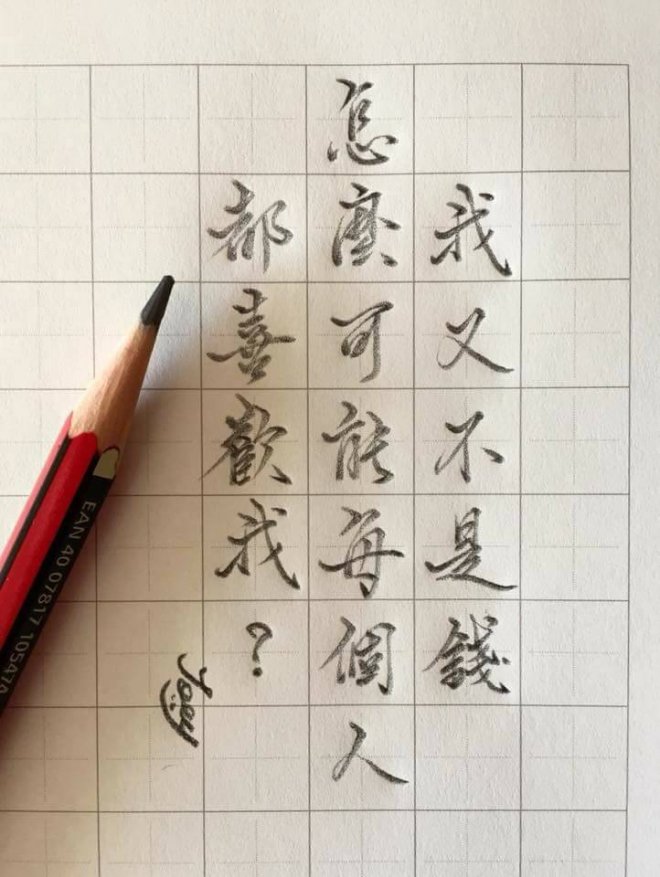 我又不是錢
怎麼可能每個人
都喜歡我？
Joey
EAN 40 07817 105474